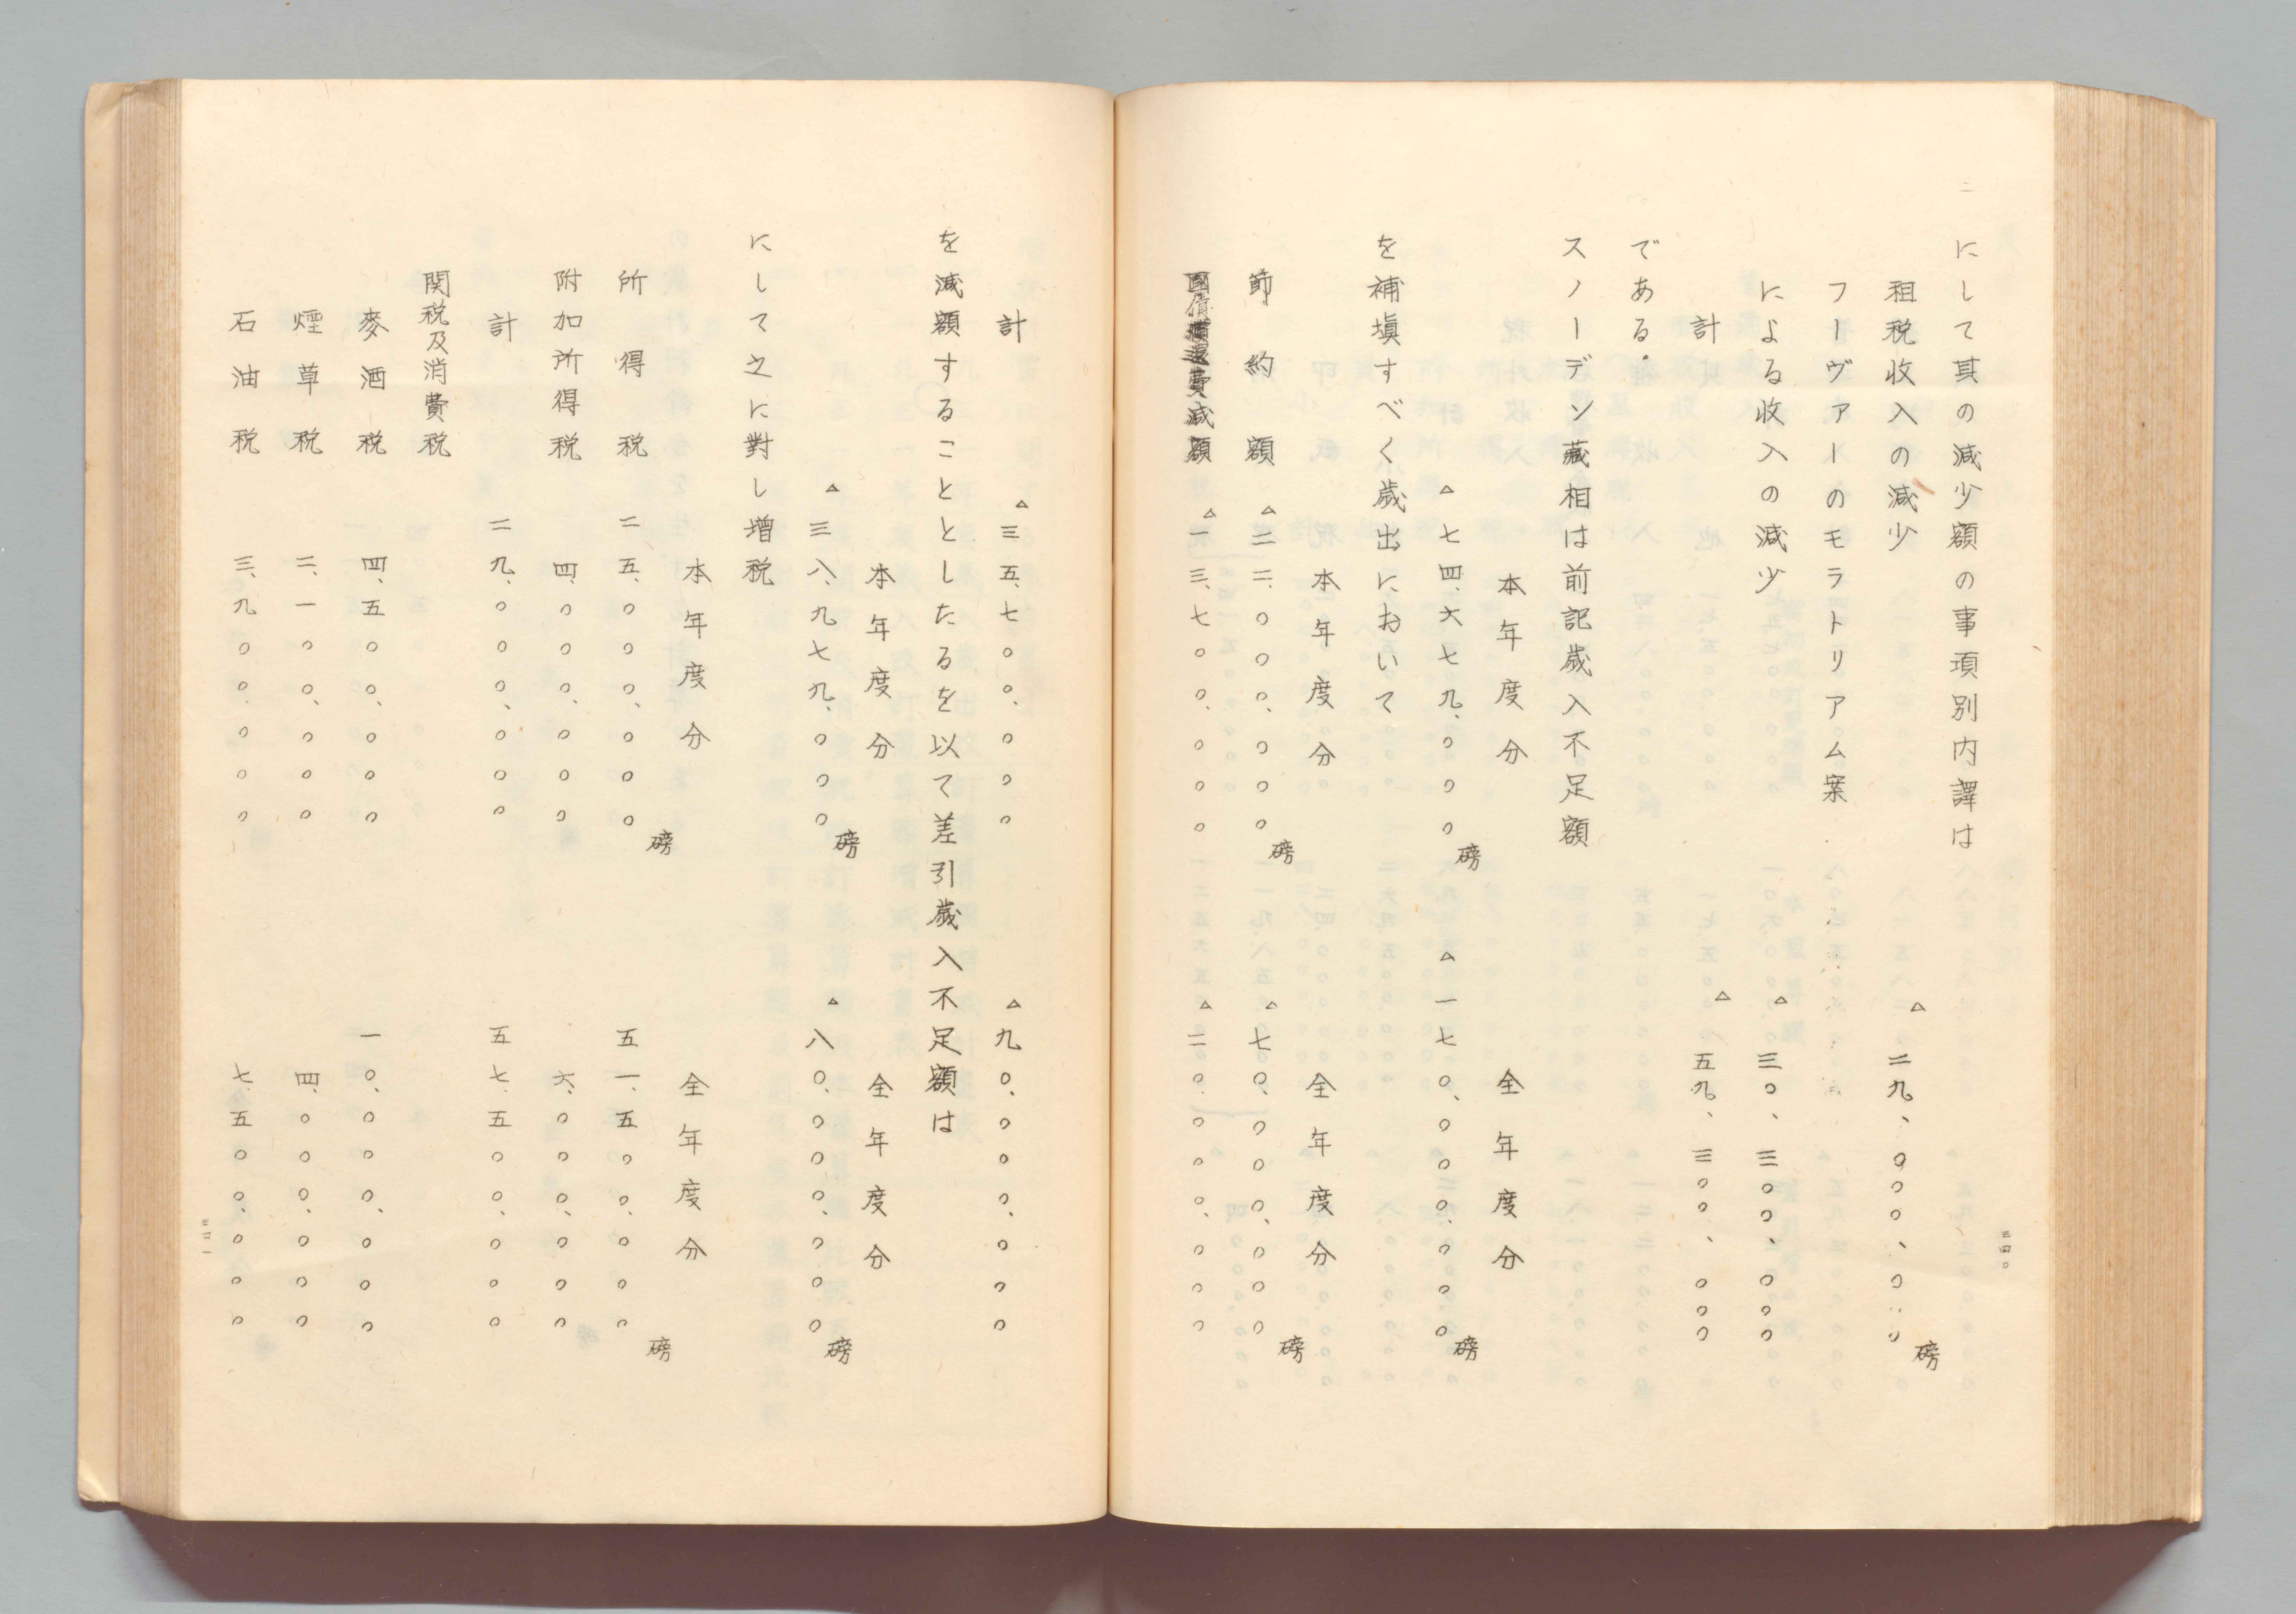 にして其の減少額の事項別内譯は
磅
租税收入の減少 △二九、〇〇〇、〇〇〇
フーヴァーのモラトリアム案
による收入の減少 △三〇、三〇〇、〇〇〇
計 △五九、三〇〇、〇〇〇
である。
スノーデン藏相は前記歲入不足額
本年度分 全年度分
磅 磅
△七四、六七九、〇〇〇 △一七〇、〇〇〇、〇〇〇
を補塡すべく歲出において
本年度分 全年度分
磅 磅
節約額 △二二、〇〇〇、〇〇〇 △七〇、〇〇〇、〇〇〇
國債償還費減額 △一三、七〇〇、〇〇〇 △二〇、〇〇〇、〇〇〇
三四〇
計 △三五、七〇〇、〇〇〇 △九〇、〇〇〇、〇〇〇
を減額することとしたるを以て差引歲入不足額は
本年度分 全年度分
磅 磅
△三八、九七九、〇〇〇 △八〇、〇〇〇、〇〇〇
にして之に對し增税
本年度分 全年度分
磅 磅
所得税 二五、〇〇〇、〇〇〇 五一、五〇〇、〇〇〇
附加所得税 四、〇〇〇、〇〇〇 六、〇〇〇、〇〇〇
計 二九、〇〇〇、〇〇〇 五七、五〇〇、〇〇〇
関税及消費税
麥酒税 四、五〇〇、〇〇〇 一〇、〇〇〇、〇〇〇
煙草税 二、一〇〇、〇〇〇 四、〇〇〇、〇〇〇
石油税 三、九〇〇、〇〇〇 七、五〇〇、〇〇〇